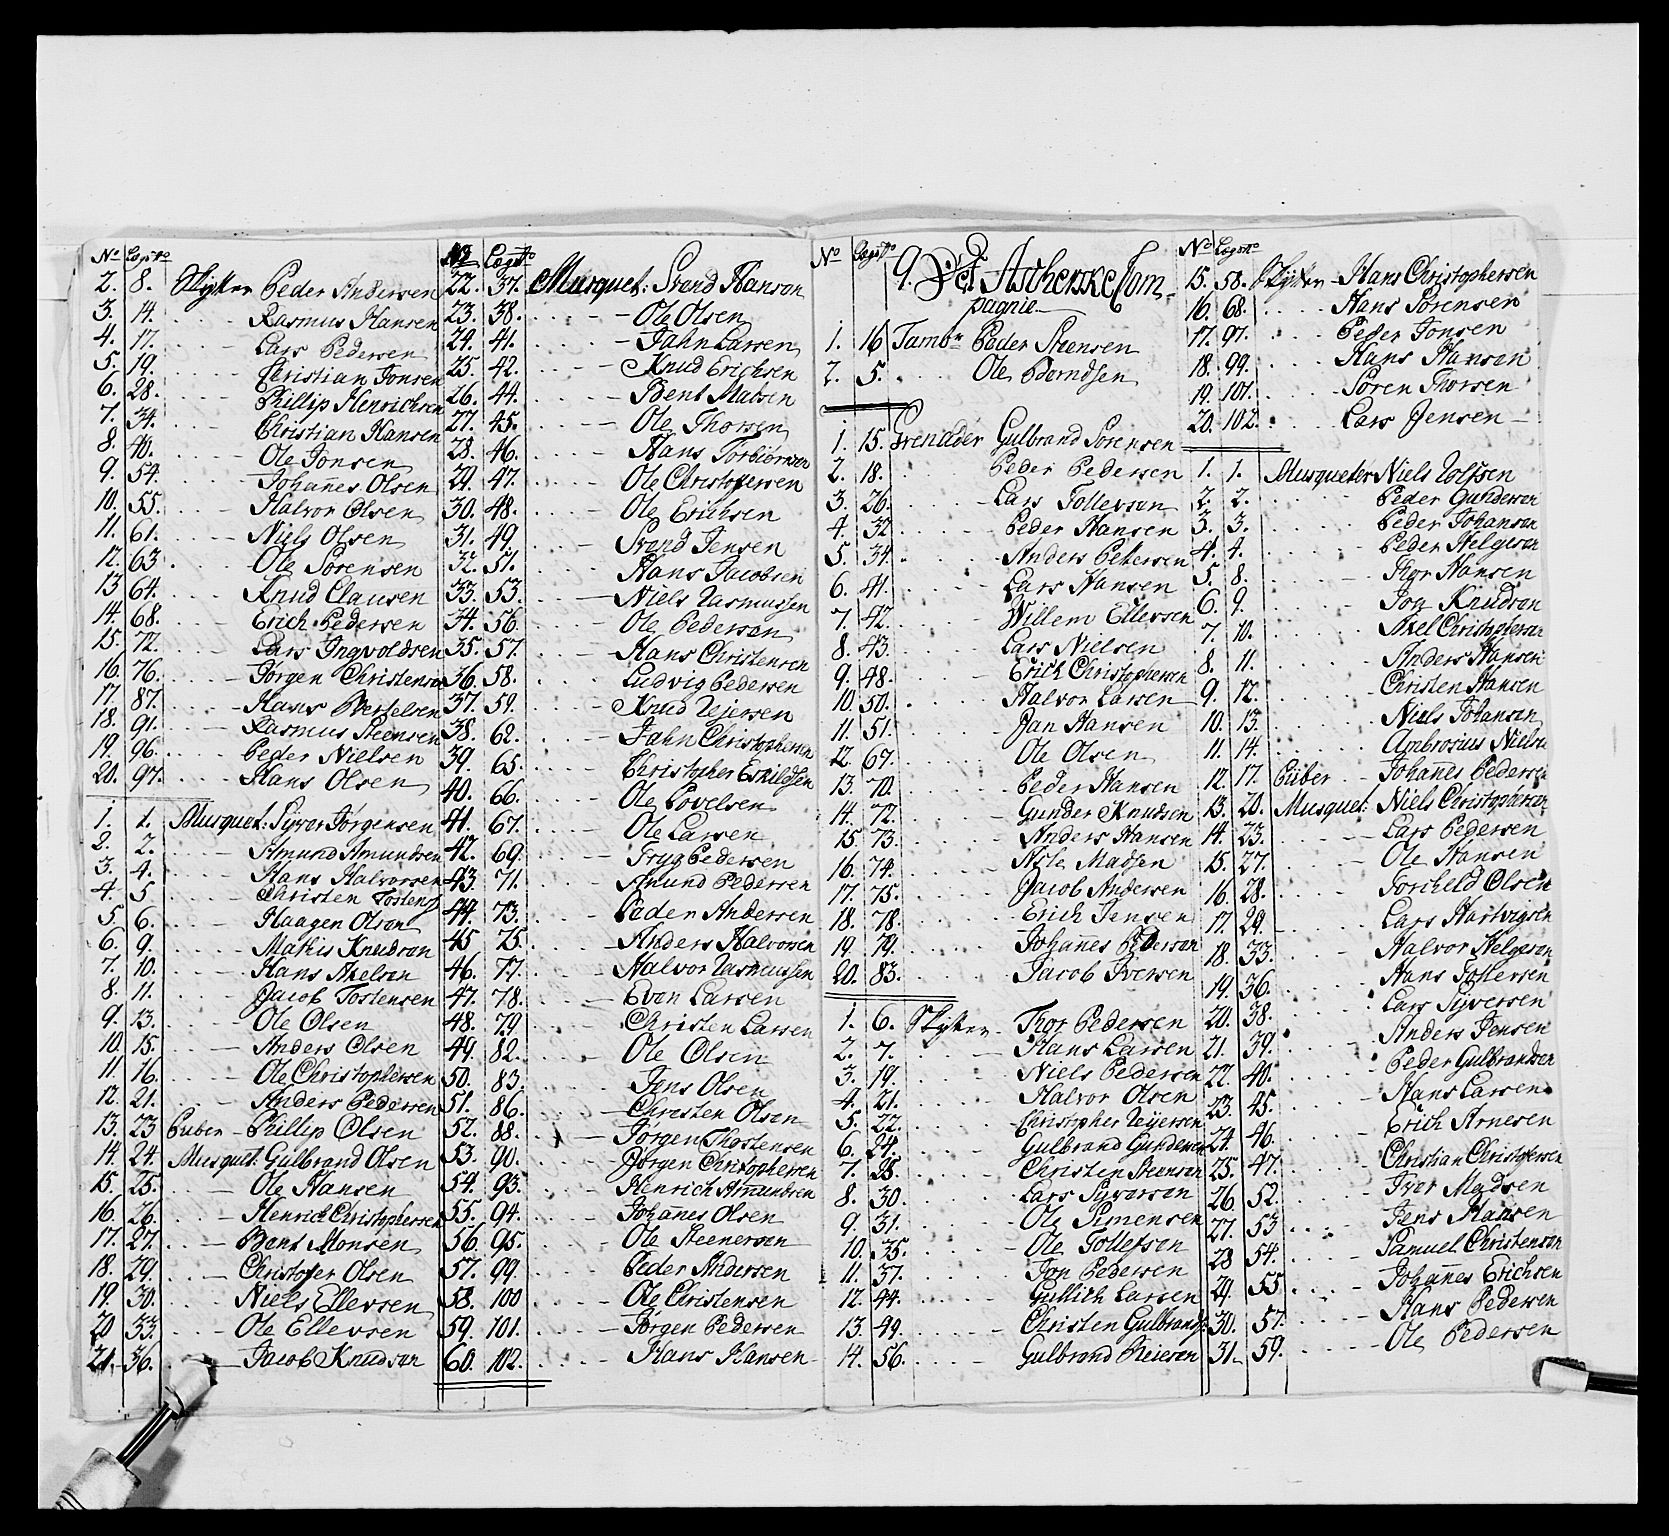 No Lægs No
2. 8. Skytter Peder Andersen
3. 14. Rasmus Hansen
4. 17. Lars Pedersen
5. 19. Christian Jonsen
6. 28. Phillip Henrichsen
7. 34. Christian Hansen
8. 40. Ole Jonsen
9. 54. Johanes Olsen
10. 55. Halvor Olsen
11. 61. Niels Olsen
12. 63. Ole Sorensen
13 64. Knud Clausen
14. 68. Erich Pedersen
15. 72. Lars Ingvoldsen
16. 76. Jørgen Christensen
17. 87. Hans Bertelsen
18. 91. Rasmus Steensen
19. 96. Peder Nielsen
20. 97. Hans Olsen
1. 1. Musquet: Syver Jørgensen
2. 2. Amund Amundsen
3. 4. Hans Halvorsen
4. 5 Christen Tostens
5. 6. Haagen Olsen
6. 9. Mathis Knudsen
7. 10. Hans Axelsen
8. 11. Jacob Tostensen
9. 13. Ole Olsen
10. 15. Anders Olsen
11. 16. Ole Christophersen
12. 21. Anders Pedersen
13. 23 Piiber Phillip Olsen
14. 24. Musquet: Gulbrand Olsen
15. 25. Ole Hansen
16. 26. Henrich Christophersen
17. 27. Bent Monsen
18. 29. Christofer Olsen
19. 30. Niels Ellevsen
20 33. Ole Ellevsen
21. 36. Jacob Knudsen
No Lægs No
22. 37. Musquet: Svend Hansen
23. 38. Ole Olsen
24. 41. Jahn Larsen
25. 42. Knud Erichsen
26. 44. Bent Madsen
27. 45. Ole Thorsen
28. 46. Hans Torbiörnsen
29. 47. Ole Christophersen
30. 48. Ole Erichsen
31. 49. Svend Jensen
32. 51. Hans Jacobsen
33. 53. Niels Rasmussen
34. 56. Ole Pedersen
35. 57. Hans Christensen
36. 58. Ludvig Pedersen
37. 59. Knud Rejersen
38. 62. Jahn Christophersen
39. 65. Christopher Eskildsen
40. 66. Ole Povelsen
41. 67. Ole Larsen
42. 69. Trygg Pedersen
43. 71. Amund Pedersen
44. 73. Peder Andersen
45 75. Anders Halvorsen
46. 77. Halvor Rasmussen
47. 78. Even Larsen
48. 79 Christen Larsen
49. 82. Ole Olsen
50. 83. Jens Olsen
51. 86. Christen Olsen
52. 88. Jørgen Thostensen
53. 90. Jørgen Christophersen
54. 93. Henrich Amundsen
55. 94. Johanes Olsen
56. 95. Ole Steenersen
57. 99. Peder Andersen
58. 100 Ole Christensen
59. 101. Jørgen Pedersen
60. 102. Hans Hansen
No Lægs No
9. Det Askerske Com-
pagnie
1. 16 Tambr Peder Steensen
2. 5. Ole Berndsen
1. 15. Grenader Gulbrand Sorensen
2. 18. Peder Pedersen
3. 26. Lars Tollevsen
4. 32 Peder Hansen
5. 34. Anders Pettersen
6. 41. Lars Hansen
7. 42. Willem Ellevsen
8. 43. Lars Nielsen
9. 48. Erich Christophersen
10. 50. Halvor Larsen
11. 51. Jan Hansen
12. 67. Ole Olsen
13. 70. Peder Hansen
14. 72. Gunder Knudsen
15. 73. Anders Hansen
16. 74. Nils Madsen
17. 75. Jacob Andersen
18. 78. Erich Jensen
19. 79. Johanes Pedersen
20. 83. Jacob Iversen
1. 6. Skytter Thor Pedersen
2. 7. Hans Larsen
3. 19. Niels Pedersen
4. 21. Halvor Olsen
5. 22. Christopher Rejersen
6. 24. Gulbrand Gundersen
7. 25. Christen Steensen
8. 30. Lars Syversen
9. 31. Ole Simensen
10. 35. Ole Tollefsen
11. 37. Jon Pedersen
12. 44. Gullich Larsen
13. 49. Christen Gulbrands:
14. 56. Gulbrand Reiersen
No Lægs No
15. 58. Skytter Hans Christophersen
16. 68. Hans Sorensen
17. 97. Peder Jonsen
18. 99. Hans Hansen
19. 101. Soren Thorsen
20. 102. Lars Jensen
1. 1. Musqueter Niels Rolfsen
2. 2. Peder Gundersen
3. 3. Peder Johansen
4. 4. Peder Helgesen
5. 8. Thor Hansen
6. 9. Jon Knudsen
7. 10. Axel Christophersen
8. 11. Anders Hansen
9. 12. Christen Hansen
10. 13. Niels Johansen
11. 14. Ambrosius Nielsen
12. 17. Piiber Johanes Pedersen
13. 20. Musquet: Niels Christophersen
14. 23. Lars Pedersen
15. 27. Ole Hansen
16. 28. Torcheld Olsen
17. 29. Lars Hartvigsen
18. 33. Halvor Helgesen
19. 36. Hans Tostensen
20. 38. Lars Syversen
21. 39. Anders Jensen
22. 40. Peder Gulbrandsen
23. 45. Hans Larsen
24. 46. Erich Arnesen
25. 47. Christian Christophersen
26. 52. Iver Madsen
27. 53 Jens Hansen
28 54. Samuel Christensen
29. 55. Johanes Erichsen
30. 57. Hans Pedersen
31. 59. Ole Pedersen